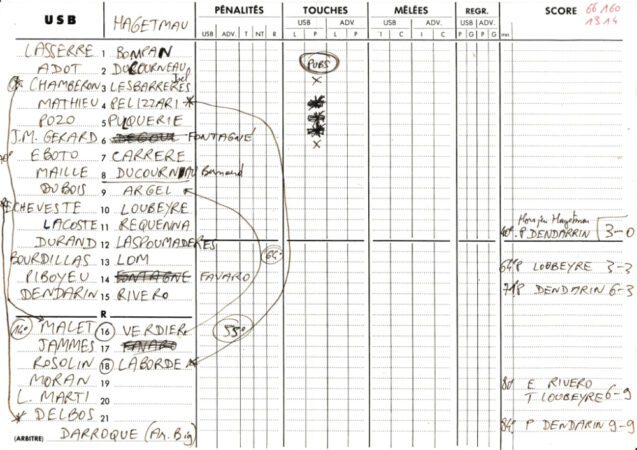 USB HAGETMAU PÉNALITÉS TOUCHES MÊLÉES REGR. SCORE 66 160
USB ADV USB ADV USB ADV 1314
USB ADV. T NT R L P L P 1 C 1 C P G P G mn.
LASSERRE 1 BOMPAN
ADOT 2 DUCOURNEAU PUBS
CHAMBERON 3 LESBARRERES Joel
MATHIEU 4 PELIZZARI
POZO 5 PUQUERIE
J.M. GERARD 6 FONTAGNÉ
EBOTO 7 CARRERE
MAILLE 8 DUCOURNAU Bernard
DUBOIS 9 ARGEL
CHEVESTE 10 LOUBEYRE
LACOSTE 11 REQUENNA 40° P DENDARRIN 3-0
DURAND 12 LASPOUMADERES
BOURDILLAS 13 LOM 64° 64° P LOUBEYRE 3-3
PIBOYEU 14 FONTAGNE FAVARO
DENDARIN 15 RIVERO 71° P DENDARIN 6-3
R
MALET 16 VERDIER 55°
JAMMES 17 FAVARO
ROSOLIN 18 LABORDE
MORAN 19 80 E RIVERO
L. MARTI 20 T LOUBEYRE 6-9
DELBOS 21
(ARBITRE) DARROQUE (Ar. Big) 84° P DENDARIN 9-9